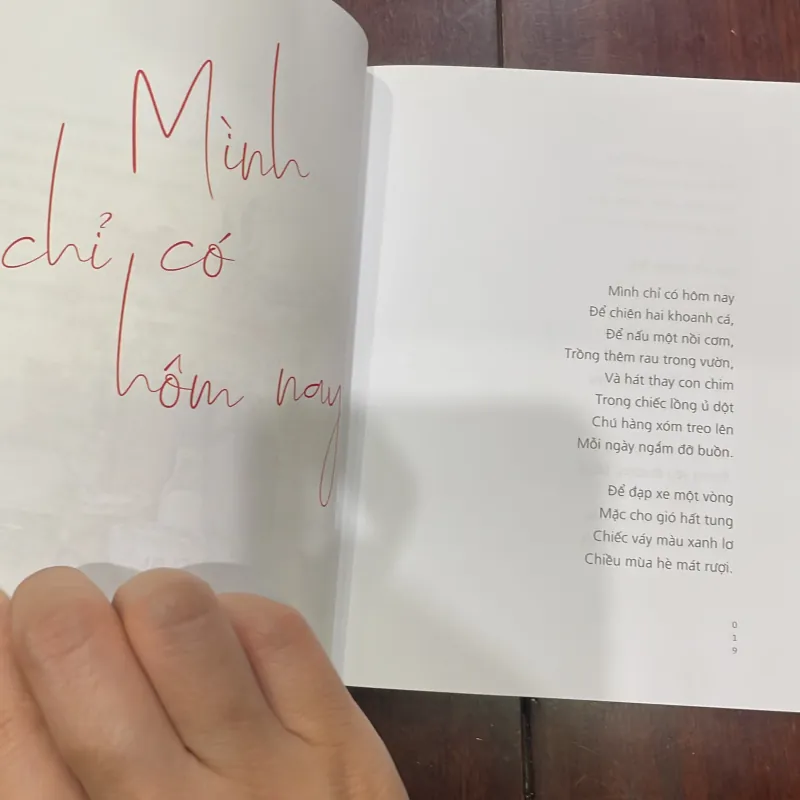 Mình
chỉ có
hôm nay
Mình chỉ có hôm nay
Để chiên hai khoanh cá,
Để nấu một nồi cơm,
Trồng thêm rau trong vườn,
Và hát thay con chim
Trong chiếc lồng ủ dột
Chú hàng xóm treo lên
Mỗi ngày ngắm đỡ buồn.
Để đạp xe một vòng
Mặc cho gió hất tung
Chiếc váy màu xanh lơ
Chiều mùa hè mát rượi.
0
1
9